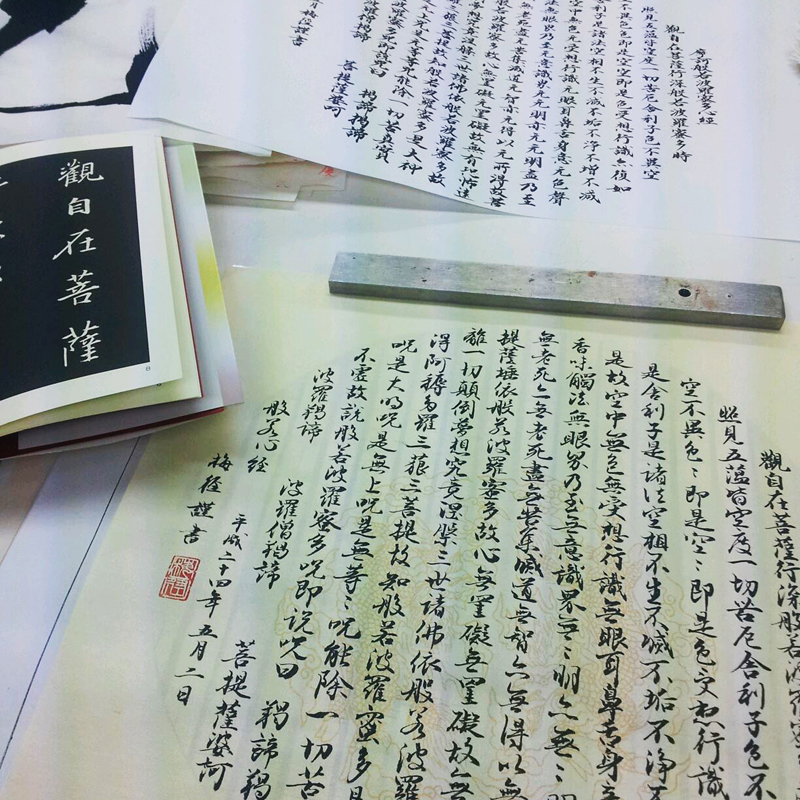 摩訶般若波羅蜜多心經
觀自在菩薩行深般若波羅蜜多時
照見五蘊皆空度一切苦厄舍利子色不異空
不異色色即是空空即是色受想行識亦復如
利子是諸法空相不生不滅不垢不淨不增不減
中无色无受想行識无眼耳鼻舌身意无色聲
法无眼界乃至无意識界无无明亦无无明盡乃至
老死盡无苦集滅道无智亦无得以无所得故菩
波羅蜜多故心無罣礙无罣礙故無有恐怖遠
夢想究竟涅槃三世諸佛依般若波羅蜜多故
三藐三菩提故知般若波羅蜜多是大神
上呪是無等等呪能除一切苦真實
波羅蜜多呪即說呪曰
揭諦揭諦
波羅僧揭諦
菩提薩婆訶
梅徑謹書
觀自在菩薩
觀自在菩薩行深般若波羅蜜
照見五蘊皆空度一切苦厄舍利子色不
空不異色ミ即是空ミ即是色受想行識
是舍利子是諸法空相不生不滅不垢不淨不
是故空中無色無受想行識無眼耳鼻舌身意
香味觸法無眼界乃至无意識界無ミ明亦無ミ明
無老死亦无老死盡无苦集滅道無智亦無得以無
提薩埵依般若波羅蜜多故心無罣礙無罣礙故無
離一切顛倒夢想究竟涅槃三世諸佛依般若波羅
得阿耨多羅三藐三菩提故知般若波羅蜜多是
呪是大明呪是無上呪是無等ミ呪能除一切苦
不虛故說般若波羅蜜多呪即說呪曰 揭諦揭
波羅揭諦 波羅僧揭諦 菩提薩婆訶
般若心經
平成二十四年五月二日
梅徑謹書